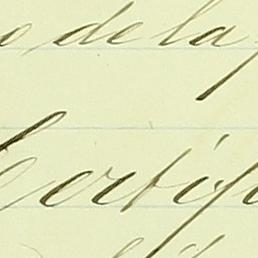 o de la
Certifi